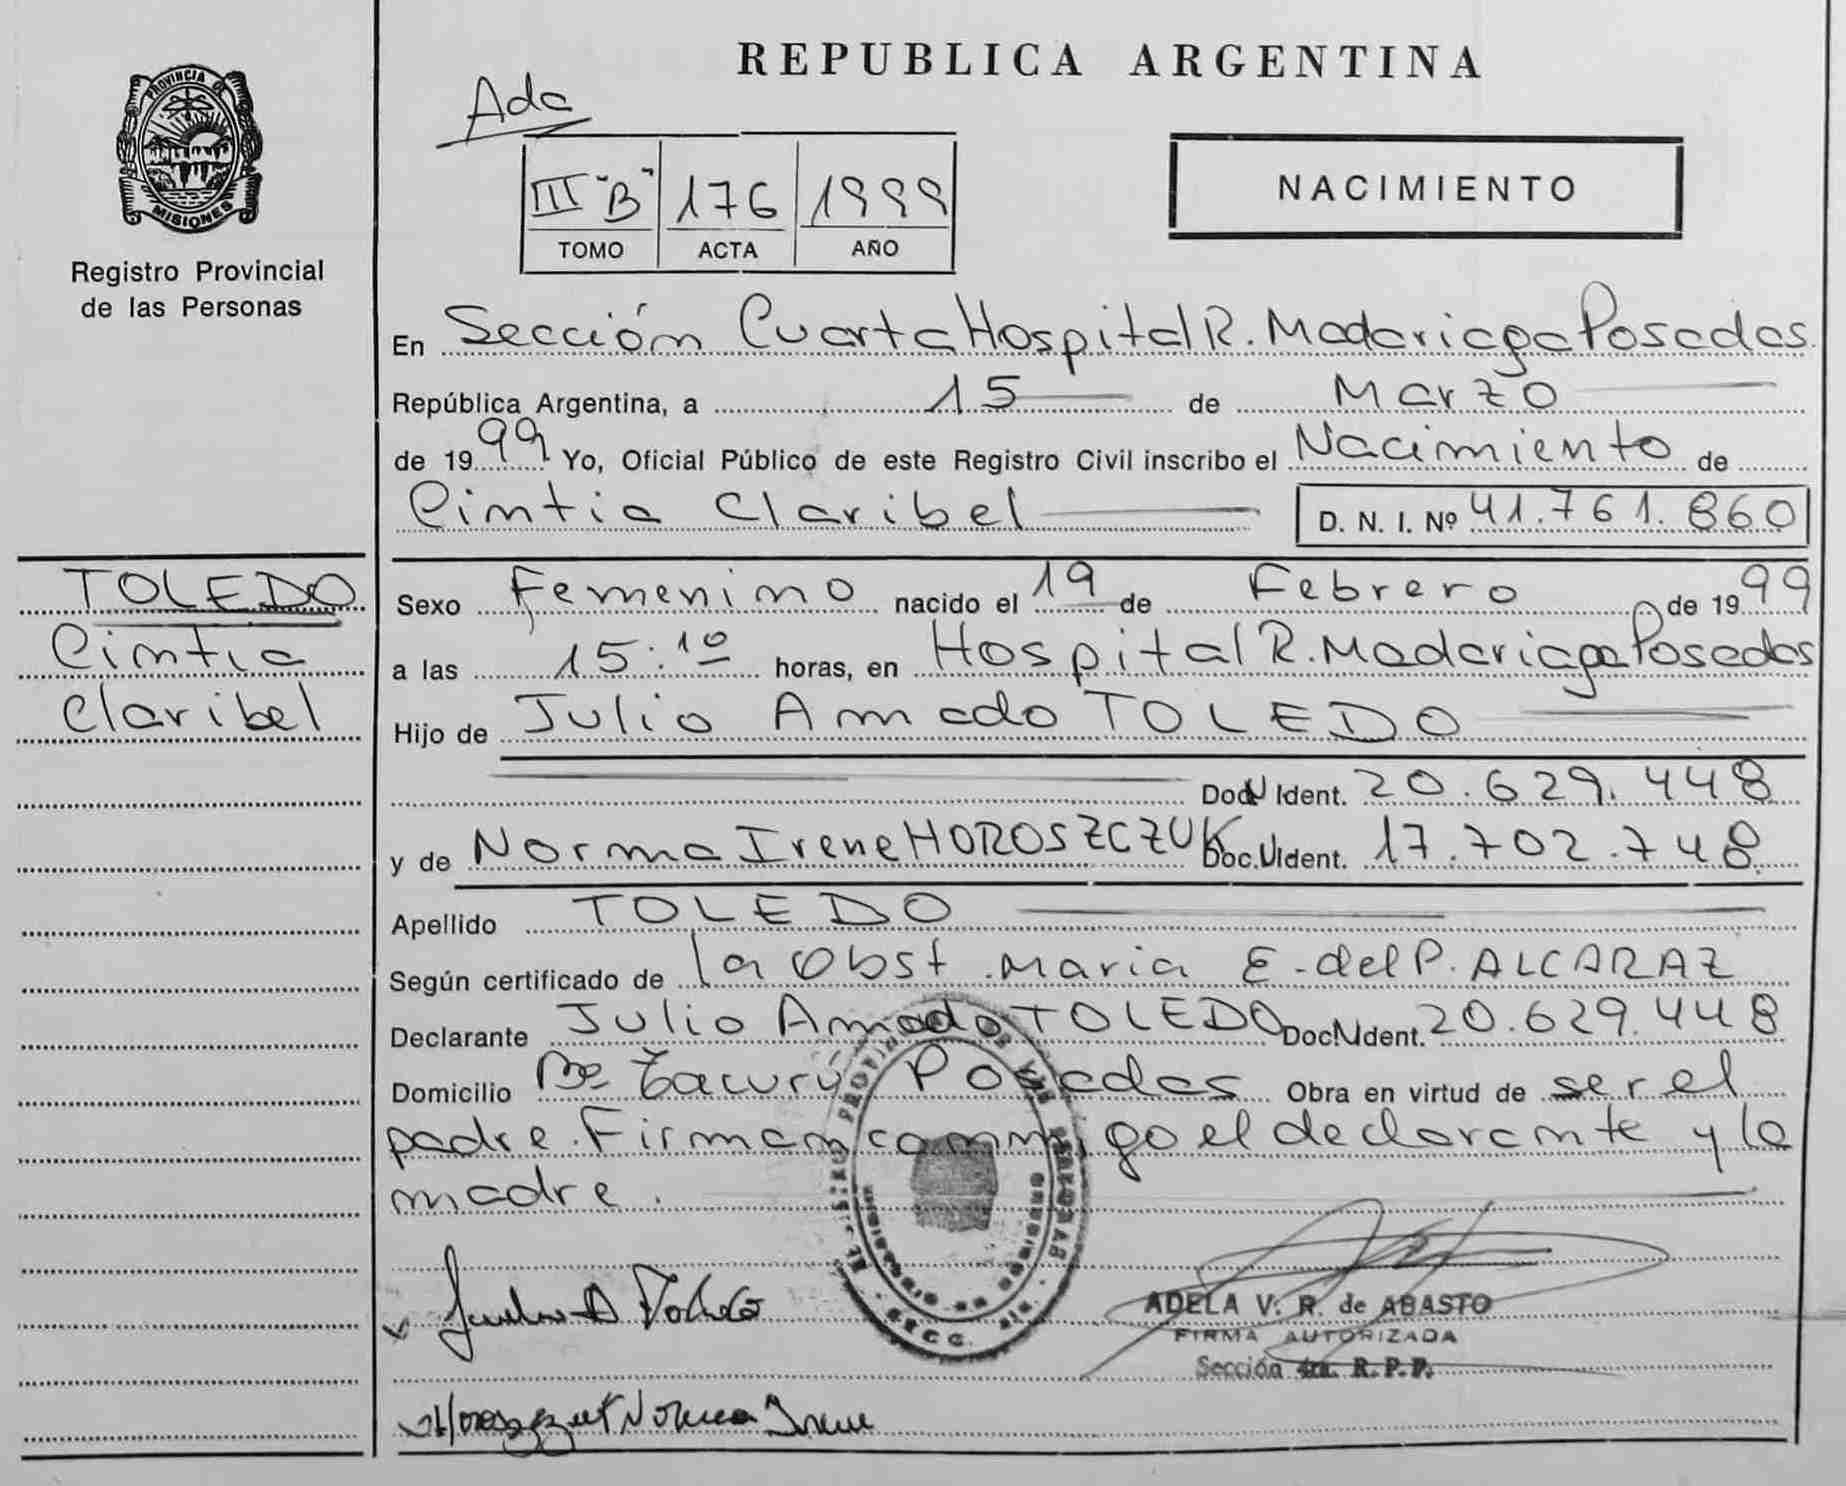 REPUBLICA ARGENTINA
PROVINCIA DE
MISIONES
Registro Provincial
de las Personas
Ada
III "B" 176 1999
TOMO ACTA AÑO
NACIMIENTO
En Sección Cuarta Hospital R. Madariaga Posadas.
República Argentina, a 15 de Marzo
de 1999 Yo, Oficial Público de este Registro Civil inscribo el Nacimiento de
Cintia Claribel D. N. I. Nº 41.761.860
TOLEDO
Cintia
Claribel
Sexo Femenino nacido el 19 de Febrero de 1999
a las 15:10 horas, en Hospital R. Madariaga Posadas
Hijo de Julio Amado TOLEDO
Doc.N Ident. 20.629.448
y de Norma Irene HOROSZCZUK Doc.U Ident. 17.702.748
Apellido TOLEDO
Según certificado de la Obst. Maria E. del P. ALCARAZ
Declarante Julio Amado TOLEDO Doc.N Ident. 20.629.448
Domicilio Bº Tacurú Posadas Obra en virtud de ser el
padre. Firman conmigo el declarante y la
madre.
ADELA V. R. de ABASTO
FIRMA AUTORIZADA
Sección 4ta. R.P.P.
Horoszczuk Norma Irene